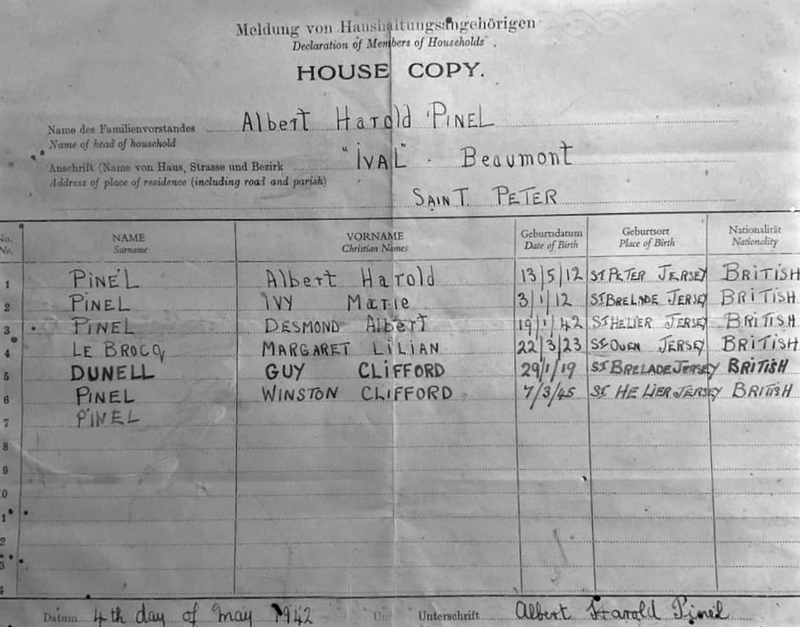 Meldung von Haushaltungsangehörigen
Declaration of Members of Households.
HOUSE COPY.
Name des Familienvorstandes Albert Harold PINEL
Name of head of household
Anschrift (Name von Haus, Strasse und Bezirk "IVAL" . Beaumont
Address of place of residence (including road and parish)
SAINT. PETER
No. NAME VORNAME Geburtsdatum Geburtsort Nationalität
No. Surname Christian Names Date of Birth Place of Birth Nationality
1 PINEL Albert Harold 13/5/12 ST PETER JERSEY BRITISH
2 PINEL IVY Marie 3/1/12 ST BRELADE JERSEY BRITISH
3 PINEL DESMOND Albert 19/1/42 ST HELIER JERSEY BRITISH
4 LE BROCQ MARGARET LILIAN 22/3/23 ST OUEN JERSEY BRITISH
5 DUNELL GUY CLIFFORD 29/1/19 ST BRELADE JERSEY BRITISH
6 PINEL WINSTON CLIFFORD 7/3/45 ST HELIER JERSEY BRITISH
7 PINEL
8
9
0
1
2
3
Datum 4th day of May 1942 Unterschrift Albert Harold Pinel